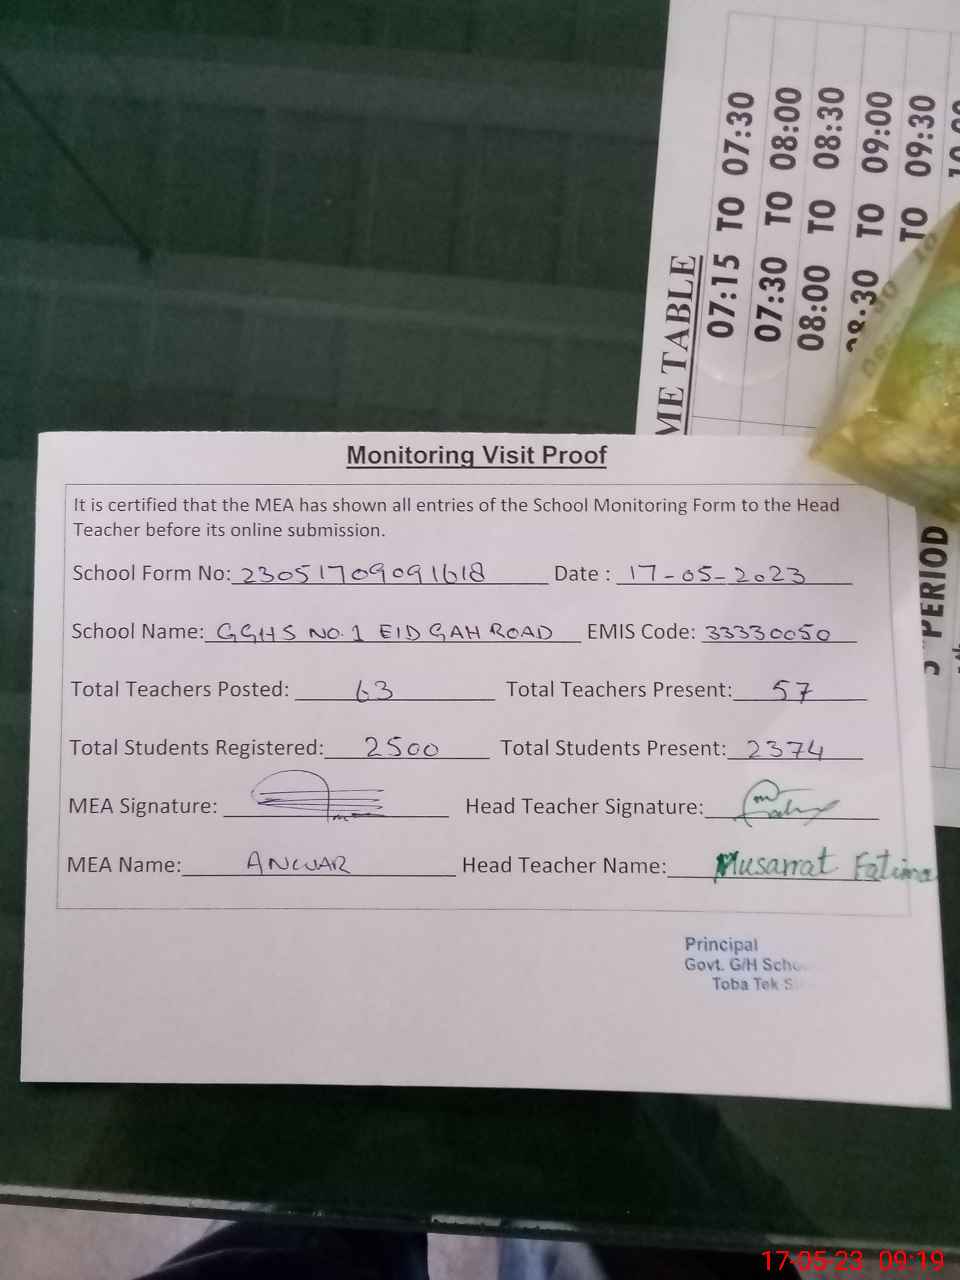 ME TABLE
07:15 TO 07:30
07:30 TO 08:00
08:00 TO 08:30
08:30 TO 09:00
TO 09:30
PERIOD
Monitoring Visit Proof
It is certified that the MEA has shown all entries of the School Monitoring Form to the Head
Teacher before its online submission.
School Form No: 23051709091618 Date : 17-05-2023
School Name: GGHS NO.1 EID GAH ROAD EMIS Code: 33330050
Total Teachers Posted: 63 Total Teachers Present: 57
Total Students Registered: 2500 Total Students Present: 2374
MEA Signature: Head Teacher Signature:
MEA Name: ANWAR Head Teacher Name: Musarrat Fatima
Principal
Govt. G/H Schoo
Toba Tek S
17-05-23 09:19